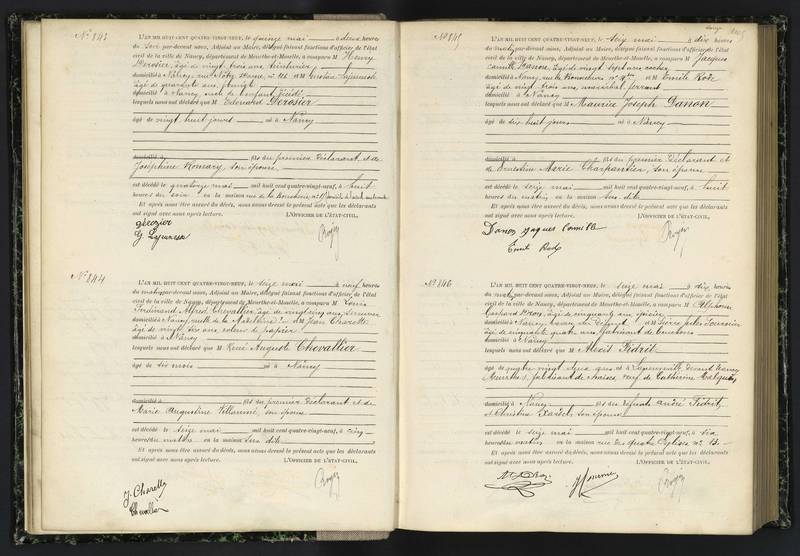 N° 843
L'AN MIL HUIT CENT QUATRE-VINGT-NEUF, le quinze mai à deux heures
du soir par-devant nous, Adjoint au Maire, délégué faisant fonctions d'officier de l'état
civil de la ville de Nancy, département de Meurthe-et-Moselle, a comparu M Henry
Derosier, âgé de vingt trois ans, teinturier,
domicilié à Nancy, rue et M Gustave Lajeunesse
âgé de quarante ans,
domicilié à Nancy, de l'enfant décédé,
lesquels nous ont déclaré que M Edouard Derosier
âgé de vingt huit jours né à Nancy
domicilié à fils du premier déclarant et de
Joséphine Romary, son épouse
est décédé le quatorze mai mil huit cent quatre-vingt-neuf, à huit
heures du soir en la maison rue de la
Et après nous être assuré du décès, nous avons dressé le présent acte que les déclarants
ont signé avec nous après lecture. L'OFFICIER DE L'ÉTAT-CIVIL,
Derosier
G. Lajeunesse
N° 844
L'AN MIL HUIT CENT QUATRE-VINGT-NEUF, le seize mai à neuf heures
du matin par-devant nous, Adjoint au Maire, délégué faisant fonctions d'officier de l'état
civil de la ville de Nancy, département de Meurthe-et-Moselle, a comparu M Louis
Ferdinand Alfred Chevallier, âgé de vingt cinq ans, serrurier
domicilié à Nancy, et M Jean Charette
âgé de vingt six ans, de papier
domicilié à Nancy
lesquels nous ont déclaré que M René Auguste Chevallier
âgé de six mois né à Nancy
domicilié à fils du premier déclarant et de
Marie Augustine Villaumé, son épouse
est décédé le seize mai mil huit cent quatre-vingt-neuf, à cinq
heures du matin en la maison sus dite
Et après nous être assuré du décès, nous avons dressé le présent acte que les déclarants
ont signé avec nous après lecture. L'OFFICIER DE L'ÉTAT-CIVIL,
J. Charette
Chevallier
N° 845
L'AN MIL HUIT CENT QUATRE-VINGT-NEUF, le seize mai à dix heures
du matin par-devant nous, Adjoint au Maire, délégué faisant fonctions d'officier de l'état
civil de la ville de Nancy, département de Meurthe-et-Moselle, a comparu M Jacques
Camille Danon, âgé de vingt sept ans, cocher,
domicilié à Nancy, et M Emile Rode
âgé de vingt trois ans, maréchal ferrant
domicilié à Nancy
lesquels nous ont déclaré que M Maurice Joseph Danon
âgé de dix huit jours né à Nancy
domicilié à fils du premier déclarant et
de Ernestine Marie Charpentier, son épouse
est décédé le seize mai mil huit cent quatre-vingt-neuf, à huit
heures du matin en la maison sus dite
Et après nous être assuré du décès, nous avons dressé le présent acte que les déclarants
ont signé avec nous après lecture. L'OFFICIER DE L'ÉTAT-CIVIL,
Danon Jaques Camille
Emile Rode
N° 846
L'AN MIL HUIT CENT QUATRE-VINGT-NEUF, le seize mai à dix heures
du matin par-devant nous, Adjoint au Maire, délégué faisant fonctions d'officier de l'état
civil de la ville de Nancy, département de Meurthe-et-Moselle, a comparu M Alphonse
Gaspard âgé de cinquante ans, épicier
domicilié à Nancy, et M Pierre Jules
âgé de cinquante quatre ans, fabricant de
domicilié à Nancy
lesquels nous ont déclaré que M Alexis Fidrit
âgé de quatre vingt deux ans né à Laneuveville devant Nancy
Meurthe, fabricant de chaises, veuf de Catherine
domicilié à Nancy fils de défunts André Fidrit
et Christine son épouse
est décédé le seize mai mil huit cent quatre-vingt-neuf, à six
heures du matin en la maison rue des quatre Églises n° 13
Et après nous être assuré du décès, nous avons dressé le présent acte que les déclarants
ont signé avec nous après lecture. L'OFFICIER DE L'ÉTAT-CIVIL,